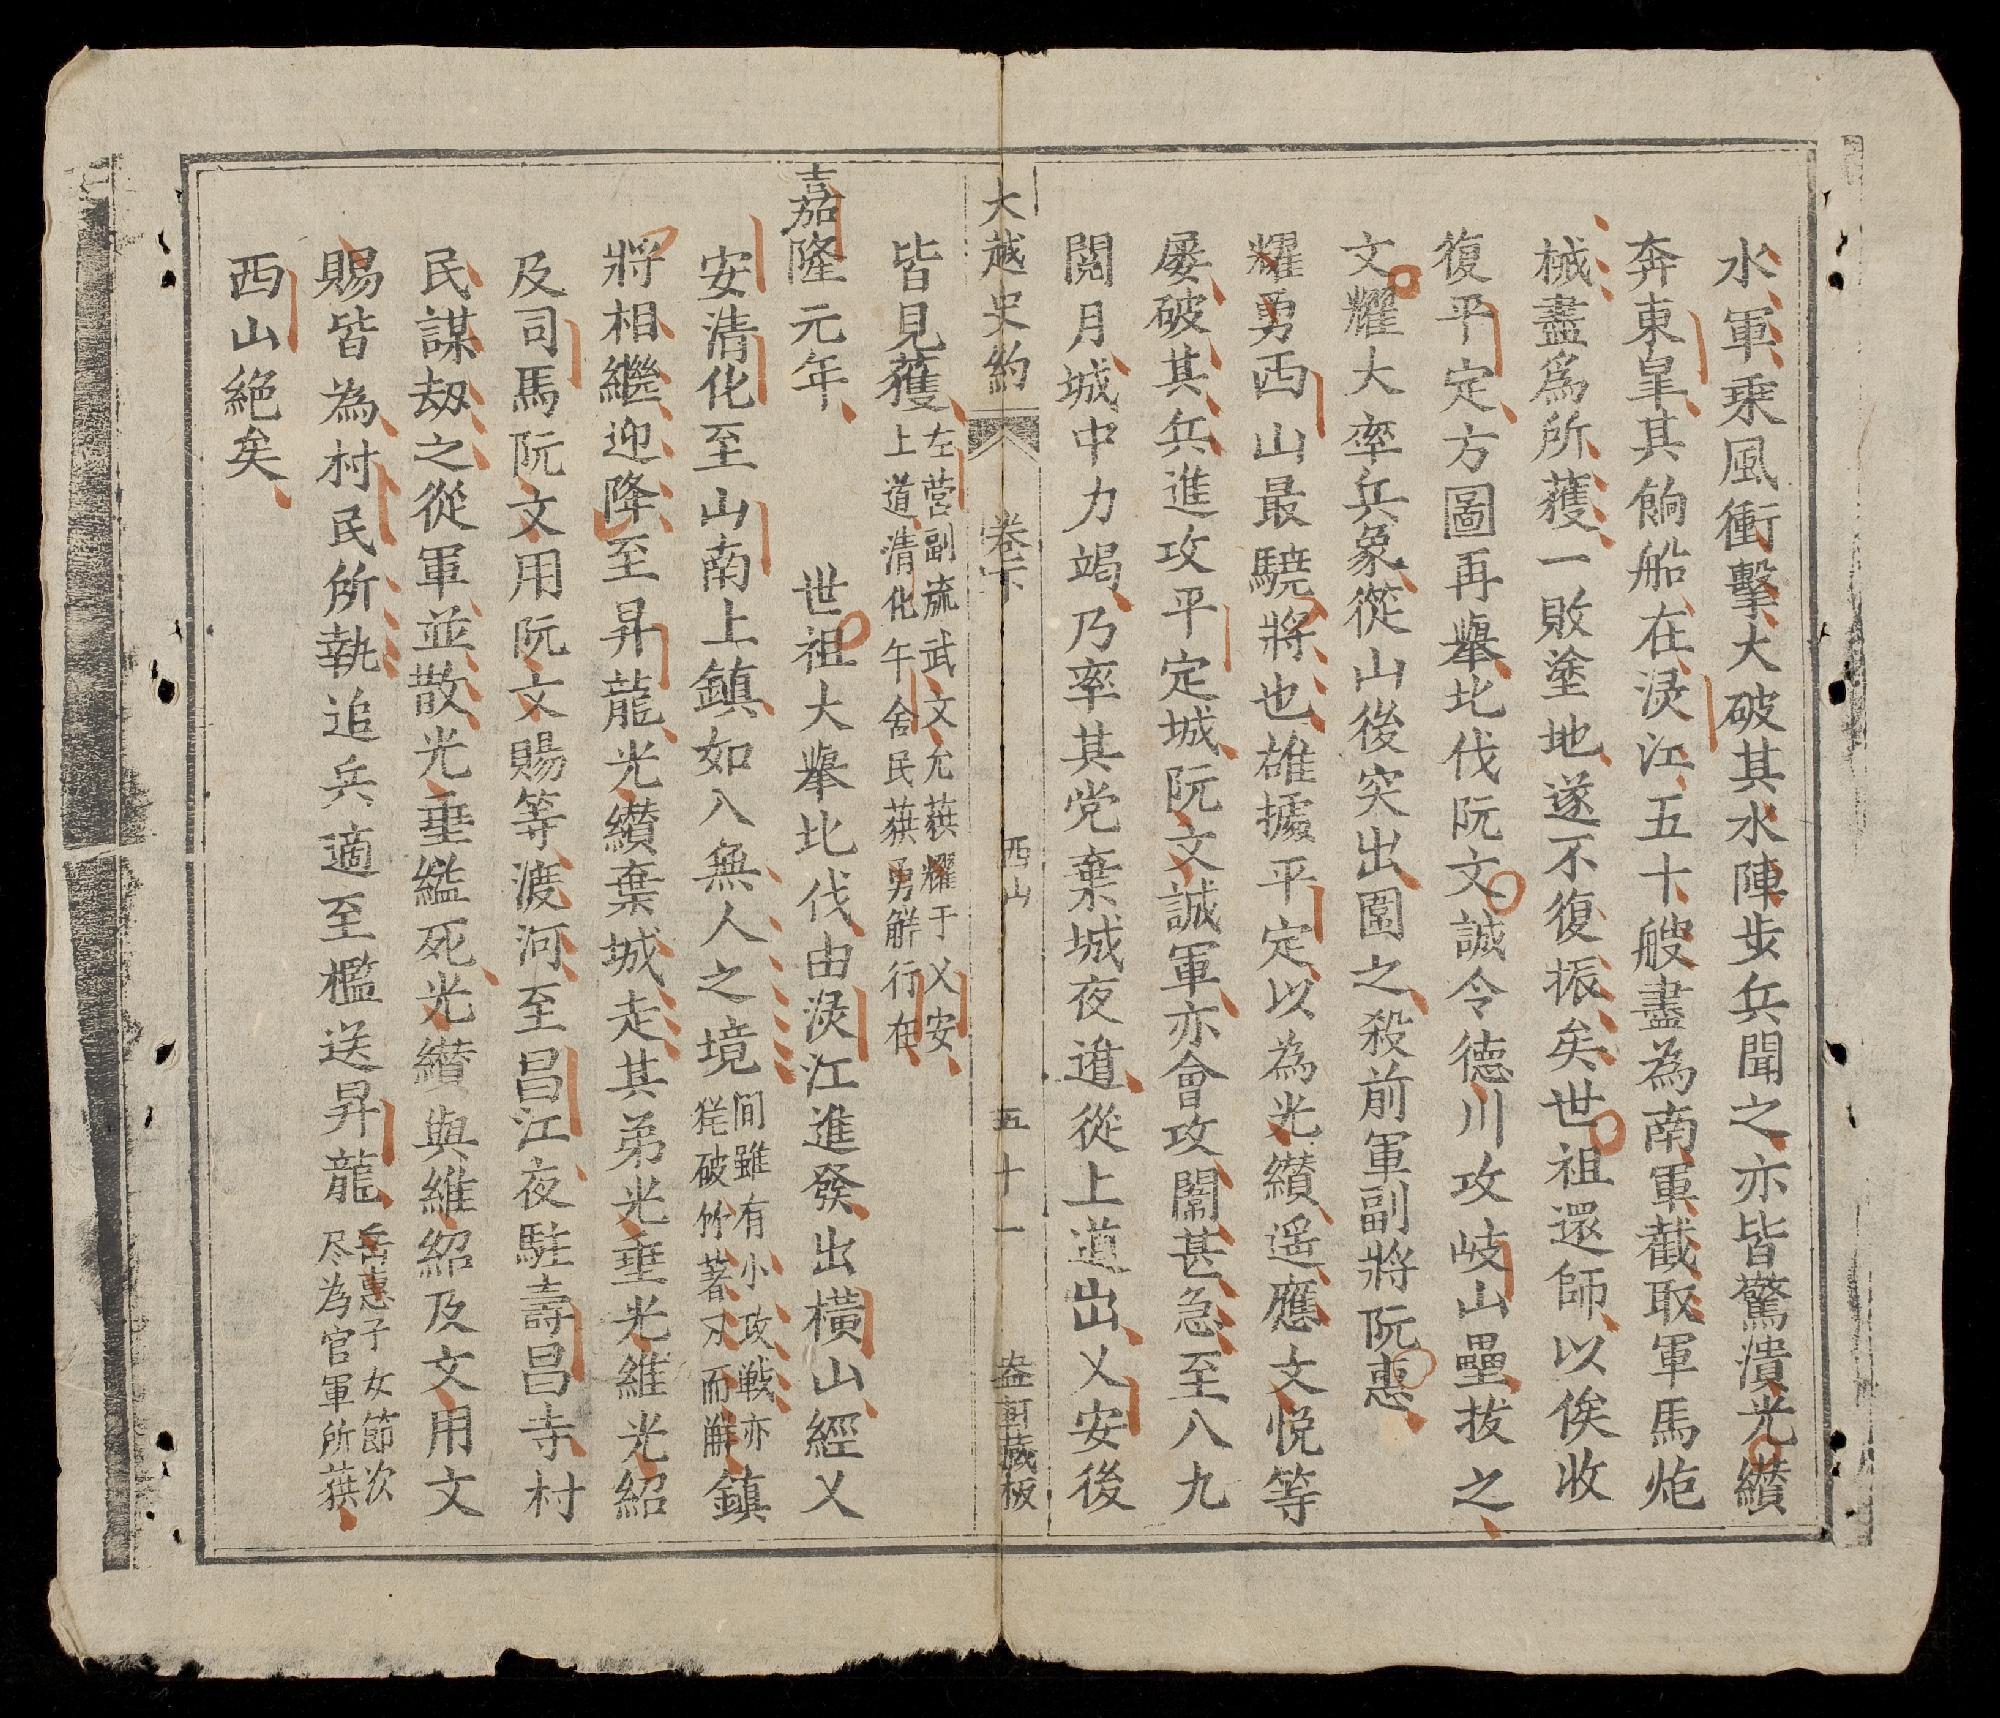 水軍乘風衝擊大破其水陣步兵聞之亦皆驚潰光纘
奔東皐其餉船在淥江五十艘盡為南軍截取軍馬炮
械盡爲所獲一敗塗地遂不復振矣世祖還師以俟收
復平定方圖再舉北伐阮文誠令德川攻岐山壘拔之
文耀大率兵象從山後突出圍之殺前軍副將阮惠
耀勇西山最驍將也雄據平定以為光纘遥應文悅等
屡破其兵進攻平定城阮文誠軍亦會攻闍甚急至八九
閱月城中力竭乃率其党棄城夜遁從上道出乂安後
大越史約
卷下
西山
五十一
藏板
皆見獲
左营副旒武文允获耀于乂安
上道清化午舍民获勇解行在
嘉隆元年
世祖大舉北伐由淥江進發出橫山經乂
安清化至山南上鎮如入無人之境
间雖有小攻戰亦
猶破竹著刃而解
鎮
將相繼迎降至昇龍光纘棄城走其弟光垂光維光紹
及司馬阮文用阮文賜等渡河至昌江夜駐壽昌寺村
民謀刼之從軍並散光垂縊死光纘與維紹及文用文
賜皆為村民所執追兵適至檻送昇龍
岳惠子女節次
尽為官軍所获
西山絕矣